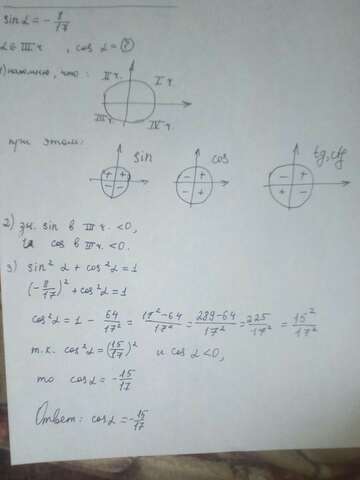 sin α = - 8/17
α ∈ III ч. , cos α = ?
1) напомню, что:
II ч. I ч.
III ч. IV ч.
при этом:
sin cos tg, ctg
+ + - + - +
- - - + + -
2) зн. sin в III ч. <0,
cos в III ч. <0.
3) sin² α + cos² α = 1
(- 8/17)² + cos² α = 1
cos² α = 1 - 64/17² = 17² - 64/17² = 289 - 64/17² = 225/17² = 15²/17²
т.к. cos² α = (15/17)² и cos α < 0,
то cos α = - 15/17
Ответ: cos α = - 15/17